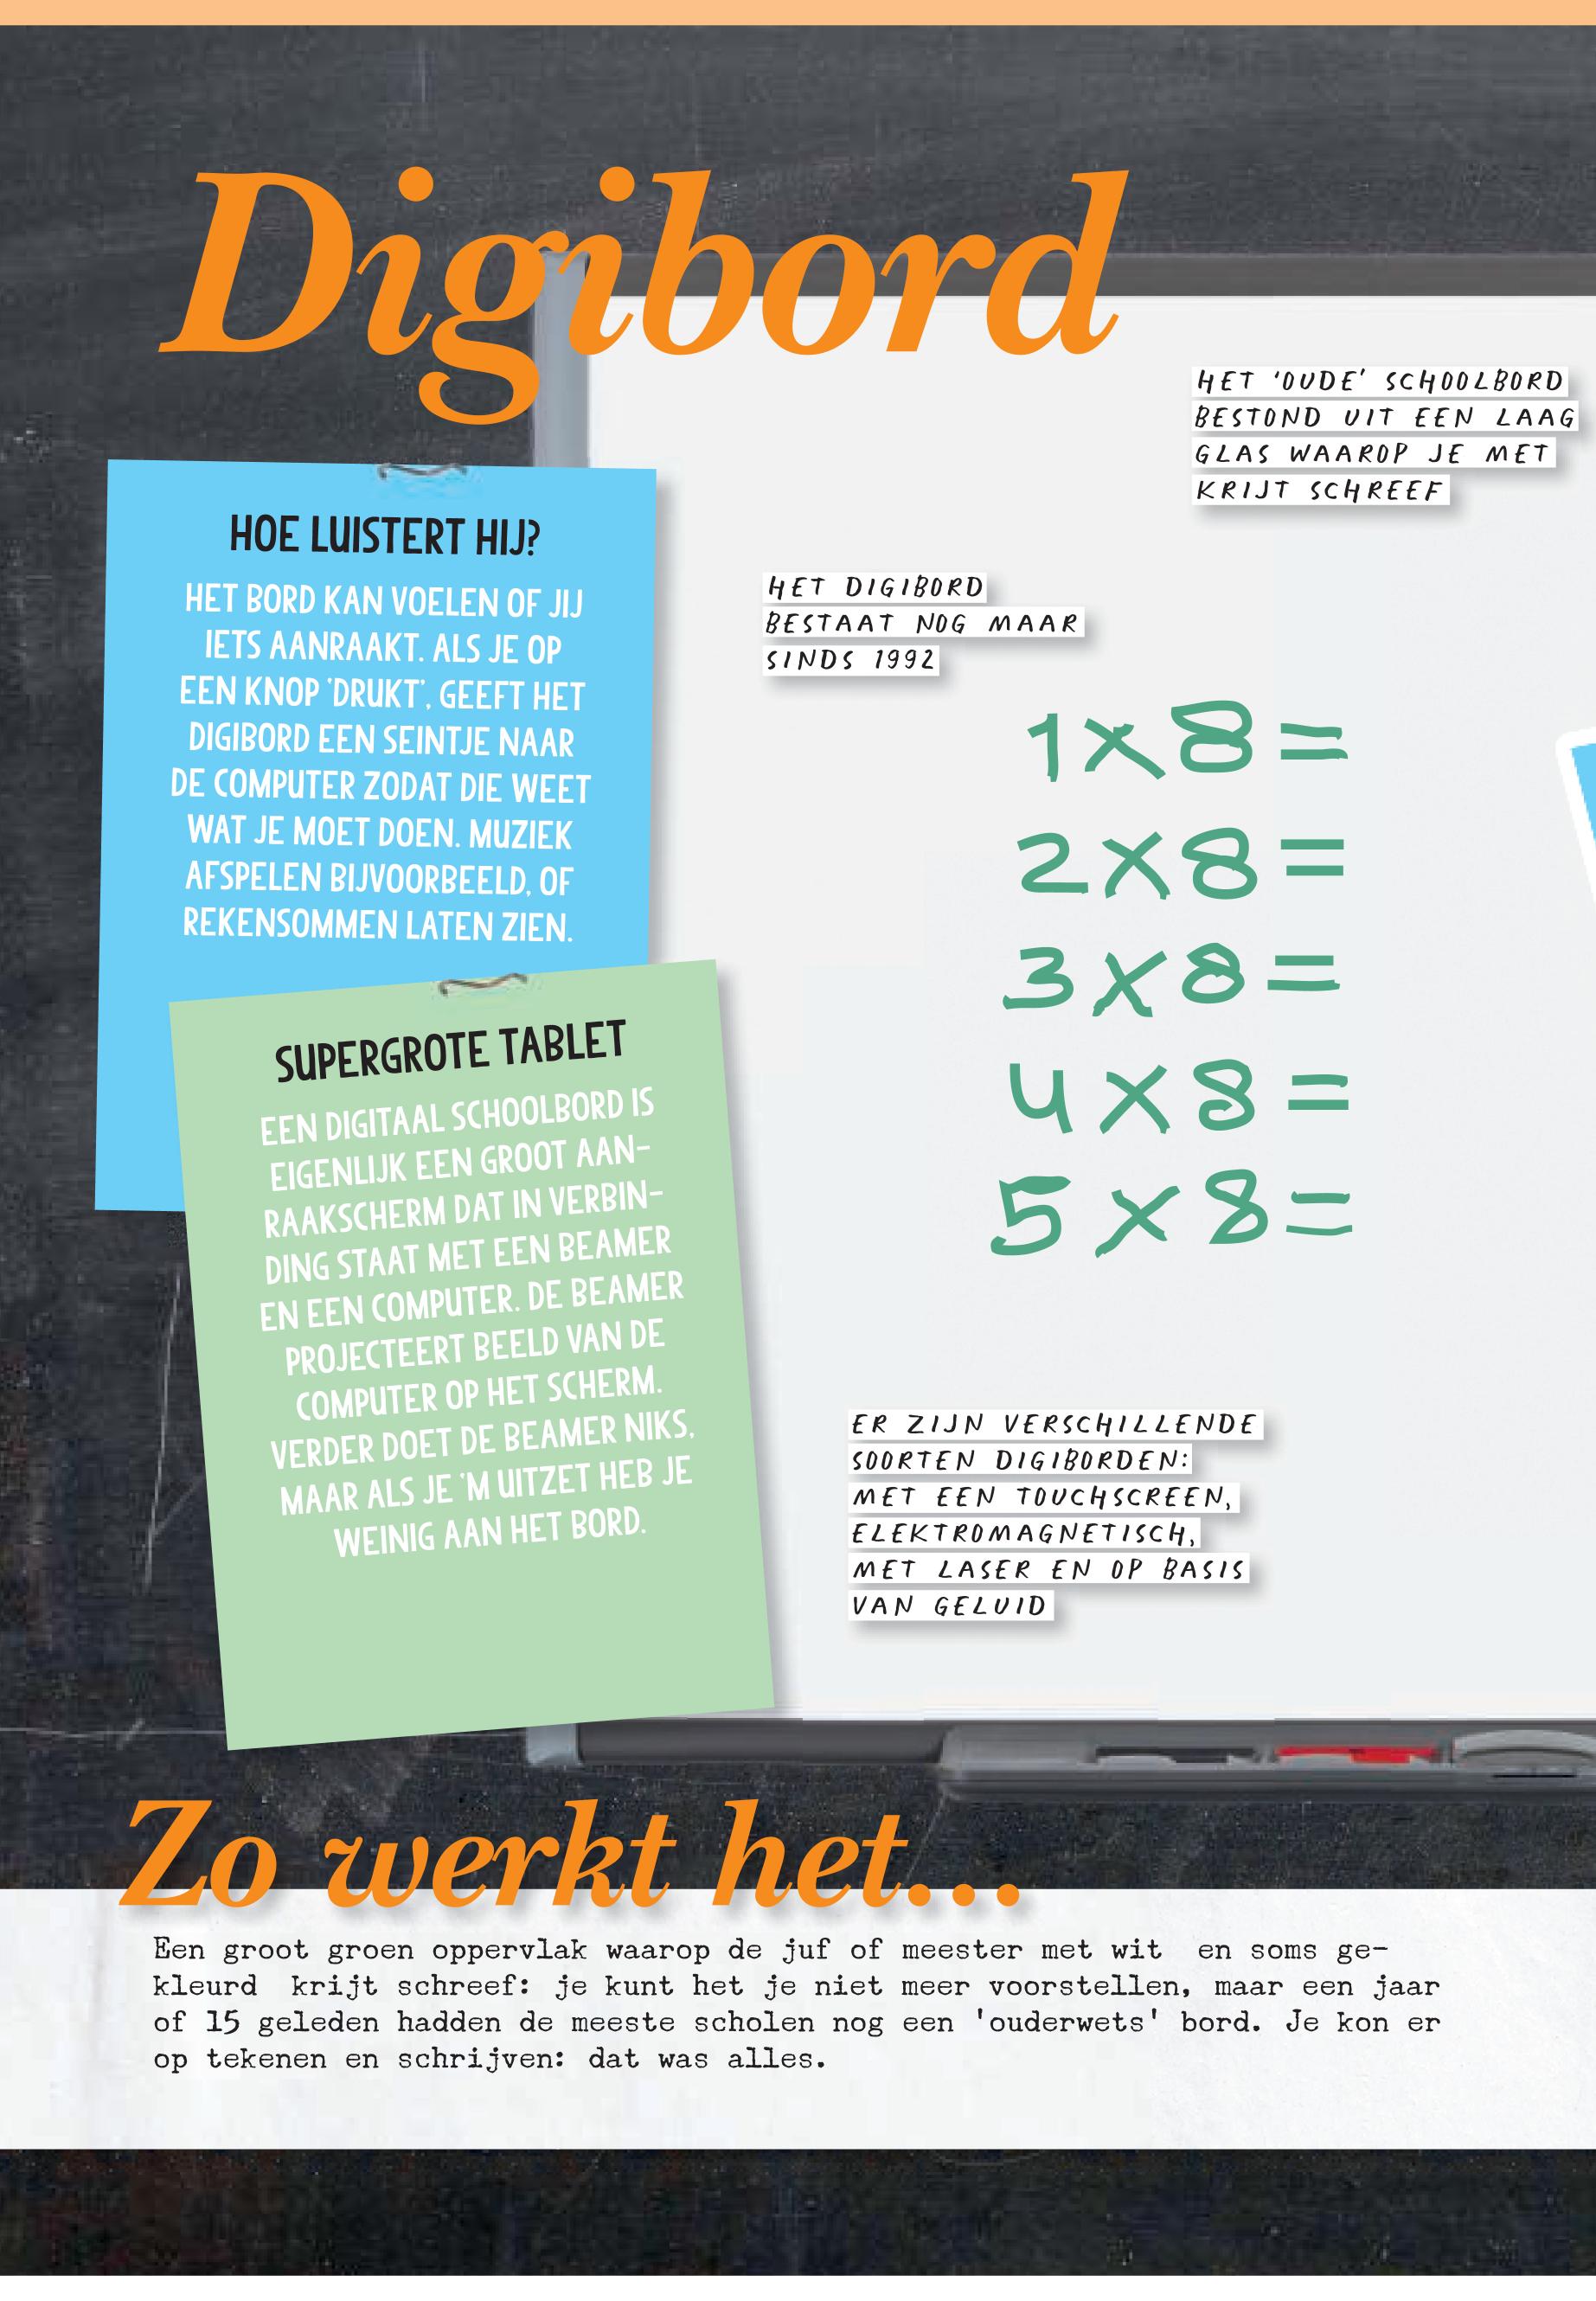 Digibord
HET 'OUDE' SCHOOLBORD
BESTOND UIT EEN LAAG
GLAS WAAROP JE MET
KRIJT SCHREEF
HOE LUISTERT HIJ?
HET BORD KAN VOELEN OF JIJ
IETS AANRAAKT. ALS JE OP
EEN KNOP 'DRUKT', GEEFT HET
DIGIBORD EEN SEINTJE NAAR
DE COMPUTER ZODAT DIE WEET
WAT JE MOET DOEN. MUZIEK
AFSPELEN BIJVOORBEELD, OF
REKENSOMMEN LATEN ZIEN.
HET DIGIBORD
BESTAAT NOG MAAR
SINDS 1992
1x8=
2x8=
3x8=
4x8=
5x8=
SUPERGROTE TABLET
EEN DIGITAAL SCHOOLBORD IS
EIGENLIJK EEN GROOT AAN-
RAAKSCHERM DAT IN VERBIN-
DING STAAT MET EEN BEAMER
EN EEN COMPUTER. DE BEAMER
PROJECTEERT BEELD VAN DE
COMPUTER OP HET SCHERM.
VERDER DOET DE BEAMER NIKS,
MAAR ALS JE 'M UITZET HEB JE
WEINIG AAN HET BORD.
ER ZIJN VERSCHILLENDE
SOORTEN DIGIBORDEN:
MET EEN TOUCHSCREEN,
ELEKTROMAGNETISCH,
MET LASER EN OP BASIS
VAN GELUID
Zo werkt het...
Een groot groen oppervlak waarop de juf of meester met wit en soms ge-
kleurd krijt schreef: je kunt het je niet meer voorstellen, maar een jaar
of 15 geleden hadden de meeste scholen nog een 'ouderwets' bord. Je kon er
op tekenen en schrijven: dat was alles.